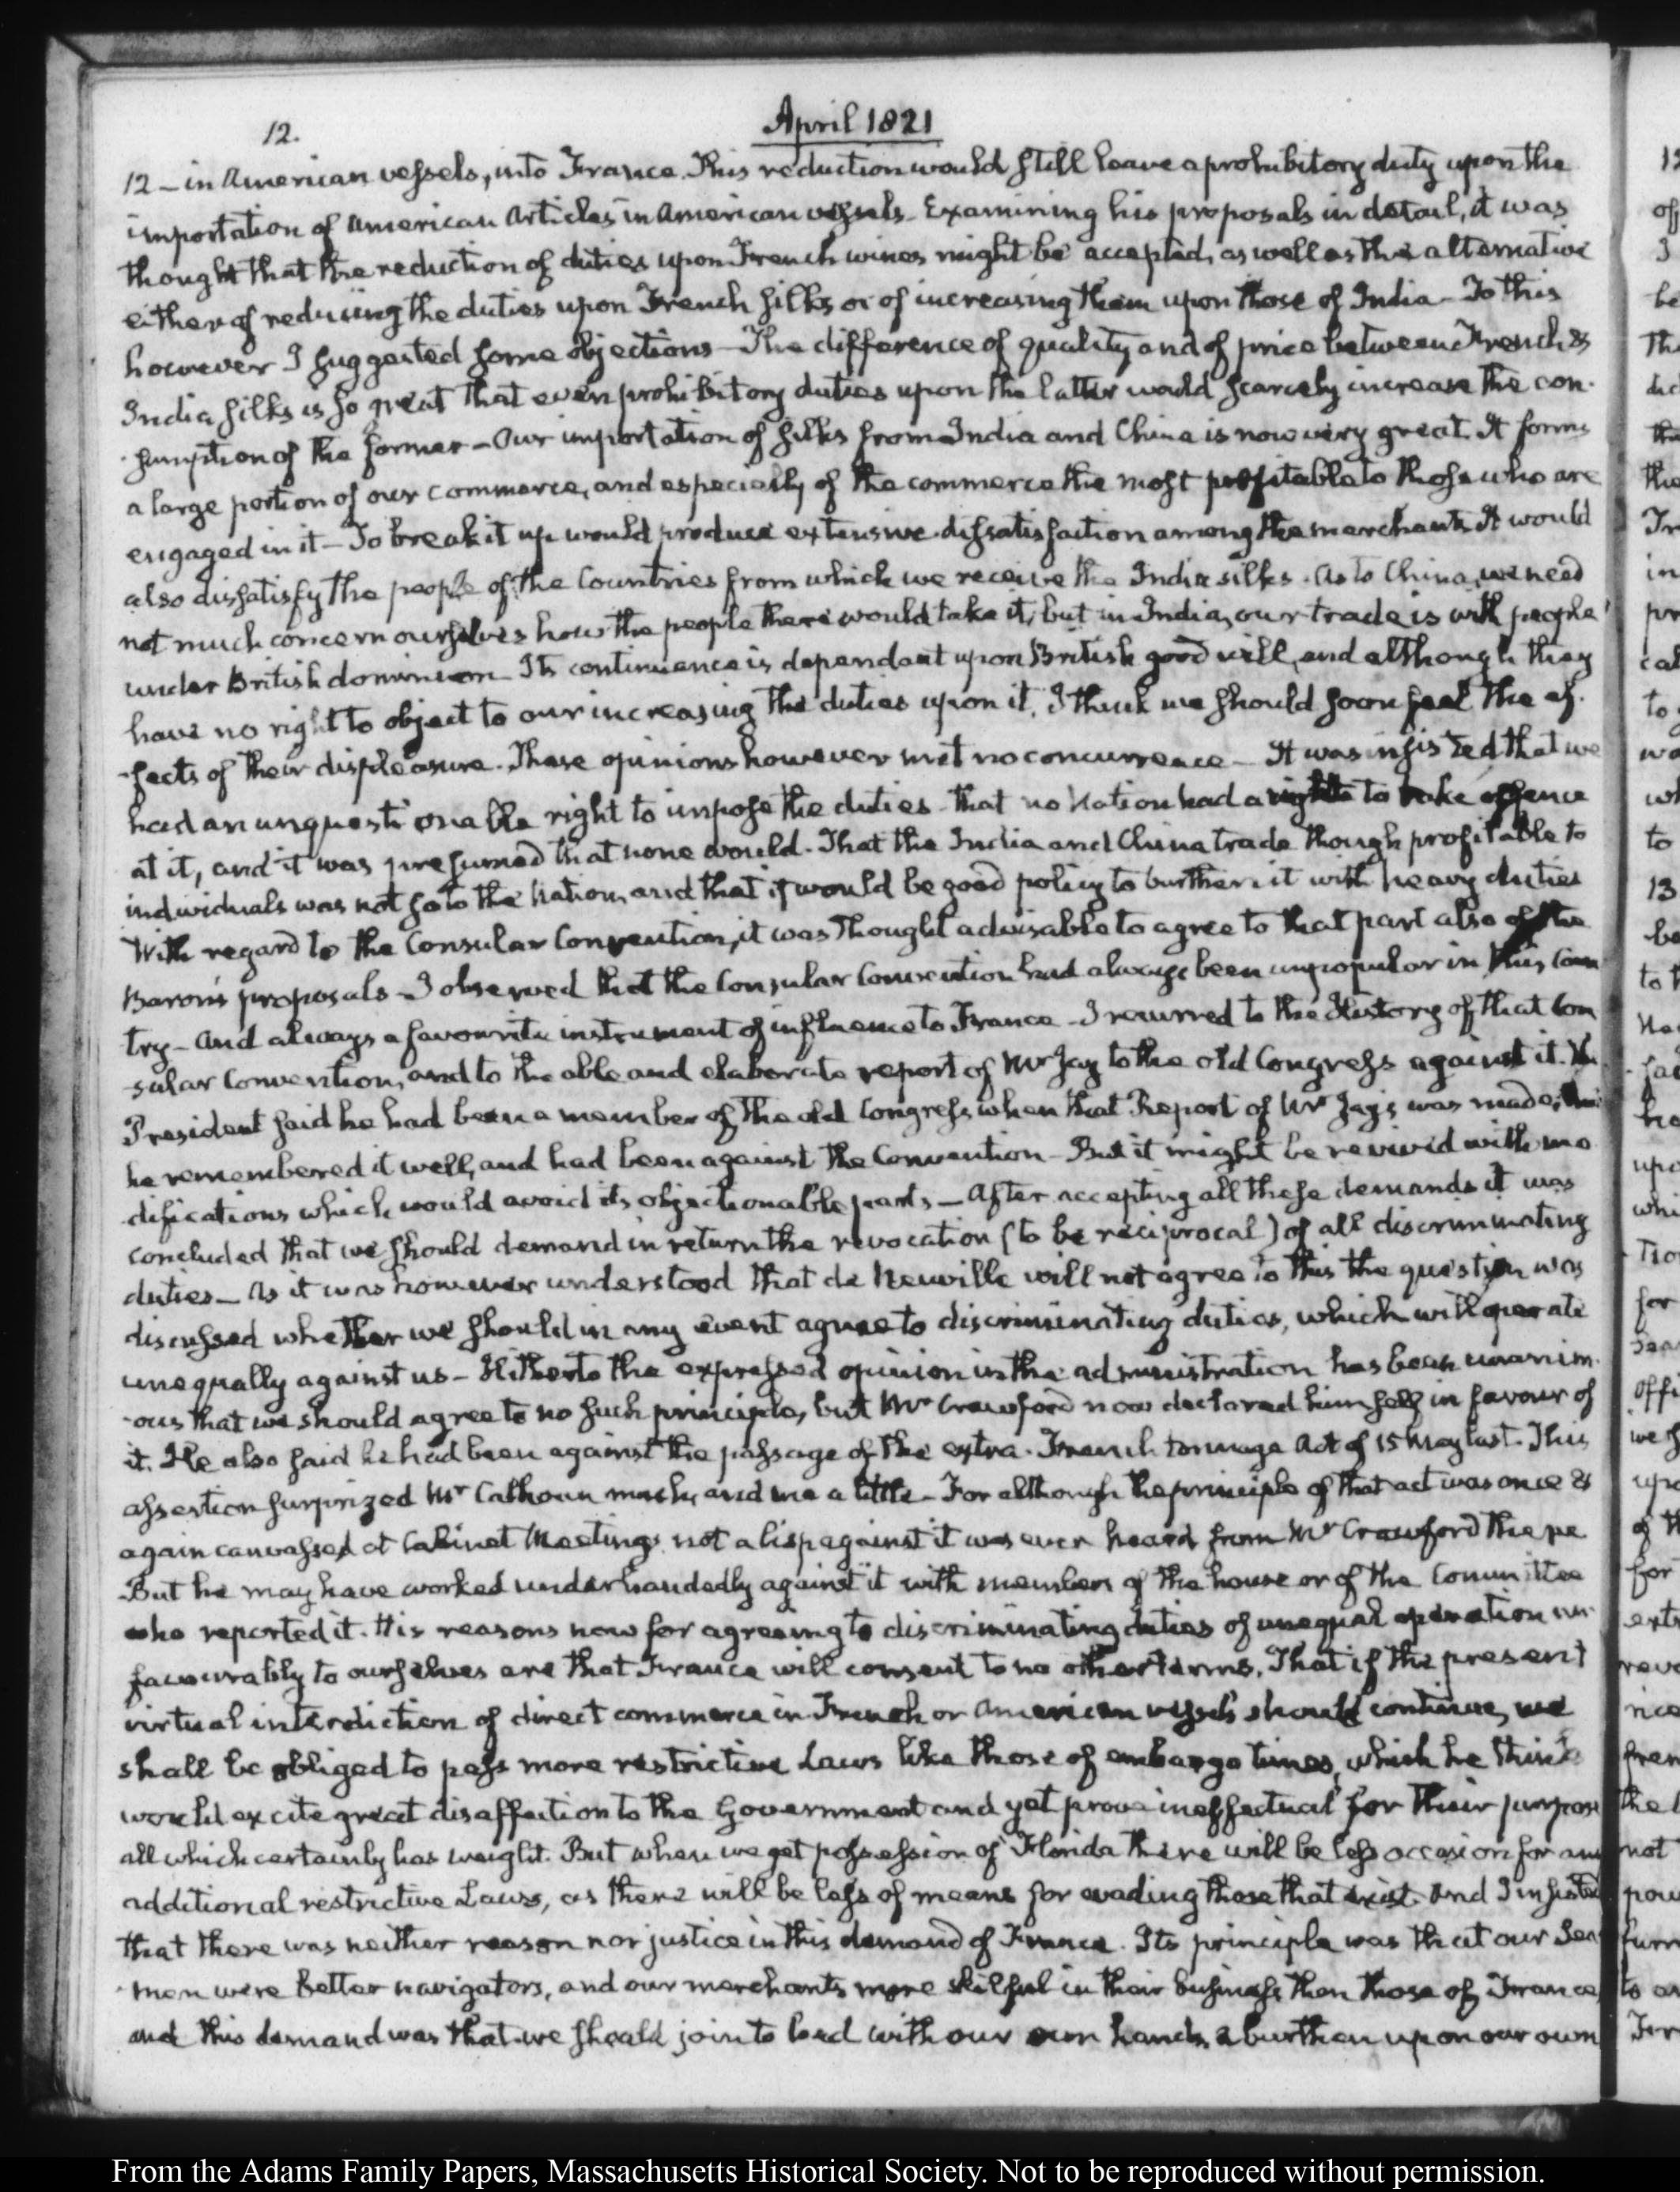 April 1821
12.
12 – in American vessels, into France. This reduction would still leave a prohibitory duty upon the
importation of American Articles in American vessels. Examining his proposals in detail, it was
thought that the reduction of duties upon French wines might be accepted, as well as the alternative
either of reducing the duties upon French silks or of increasing them upon those of India – To this
however I suggested some objections – The difference of quality and of price between French &
India silks is so great that even prohibitory duties upon the latter would scarcely increase the con-
-sumption of the former – Our importation of silks from India and China is now very great. It forms
a large portion of our commerce, and especially of the commerce the most profitable to those who are
engaged in it – To break it up would produce extensive dissatisfaction among the merchants. It would
also dissatisfy the people of the Countries from which we receive the India silks. As to China, we need
not much concern ourselves how the people there would take it, but in India, our trade is with people
under British dominion – Its continuance is dependent upon British good will, and although they
have no right to object to our increasing the duties upon it, I think we should soon feel the ef-
-fects of their displeasure. These opinions however met no concurrence – It was insisted that we
had an unquestionable right to impose the duties – that no Nation had a right to take offence
at it, and it was presumed that none would. That the India and China trade though profitable to
individuals was not so to the Nation, and that it would be good policy to burthen it with heavy duties
With regard to the Consular Convention, it was thought advisable to agree to that part also of the
Baron's proposals – I observed that the Consular Convention had always been unpopular in this Coun
try – And always a favourite instrument of influence to France – I recurred to the History of that Con
-sular Convention, and to the able and elaborate report of Mr Jay to the old Congress against it. The
President said he had been a member of the old Congress when that Report of Mr Jay's was made; that
he remembered it well, and had been against the Convention – But it might be revived with mo
difications which would avoid its objectionable parts – After accepting all these demands it was
concluded that we should demand in return the revocation (to be reciprocal) of all discriminating
duties – As it was however understood that de Neuville will not agree to this the question was
discussed whether we should in any event agree to discriminating duties, which will operate
unequally against us – Hitherto the expressed opinion in the administration has been unanim-
-ous that we should agree to no such principle, but Mr Crawford now declared himself in favour of
it. He also said he had been against the passage of the extra-French tonnage Act of 15 May last. This
assertion surprized Mr Calhoun much, and me a little – For although the principle of that act was once &
again canvassed at Cabinet Meetings not a lisp against it was ever heard from Mr Crawford there
But he may have worked underhandedly against it with members of the house or of the Committee
who reported it. His reasons now for agreeing to discriminating duties of unequal operation un-
favourably to ourselves are that France will consent to no other terms. That if the present
virtual interdiction of direct commerce in French or American vessels should continue, we
shall be obliged to pass more restrictive Laws like those of embargo times, which he thinks
would excite great disaffection to the Government and yet prove ineffectual for their purpose
all which certainly has weight. But when we get possession of Florida there will be less occasion for any
additional restrictive Laws, as there will be less of means for evading those that exist. And I insisted
that there was neither reason nor justice in this demand of France. Its principle was that our Sea
-men were better navigators, and our merchants more skilful in their business than those of France,
and this demand was that we should join to load with our own hands, a burthen upon our own
From the Adams Family Papers, Massachusetts Historical Society. Not to be reproduced without permission.